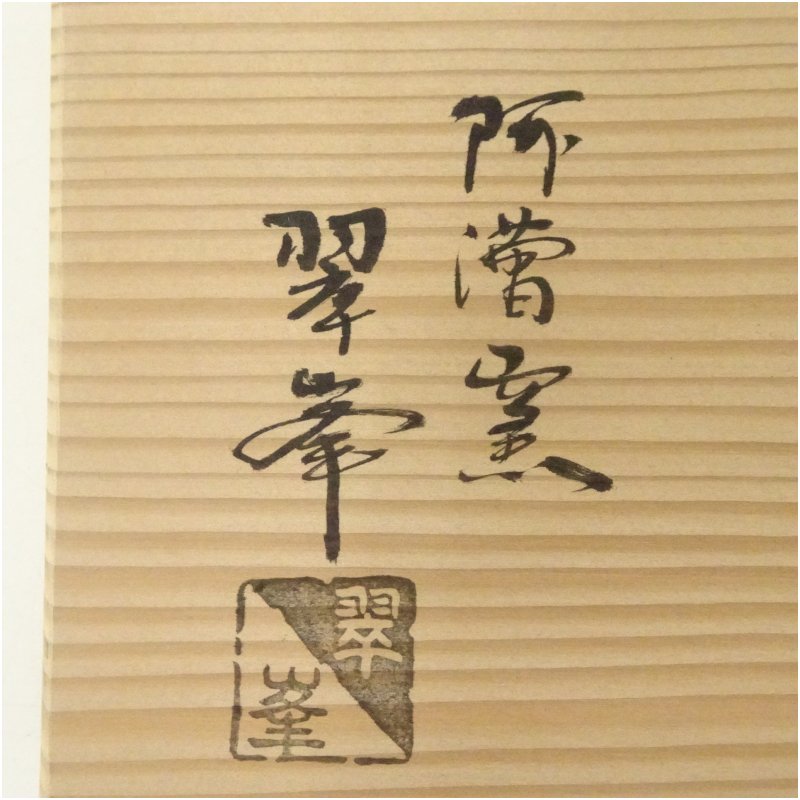 阿漕窯
翠峯
翠
峯